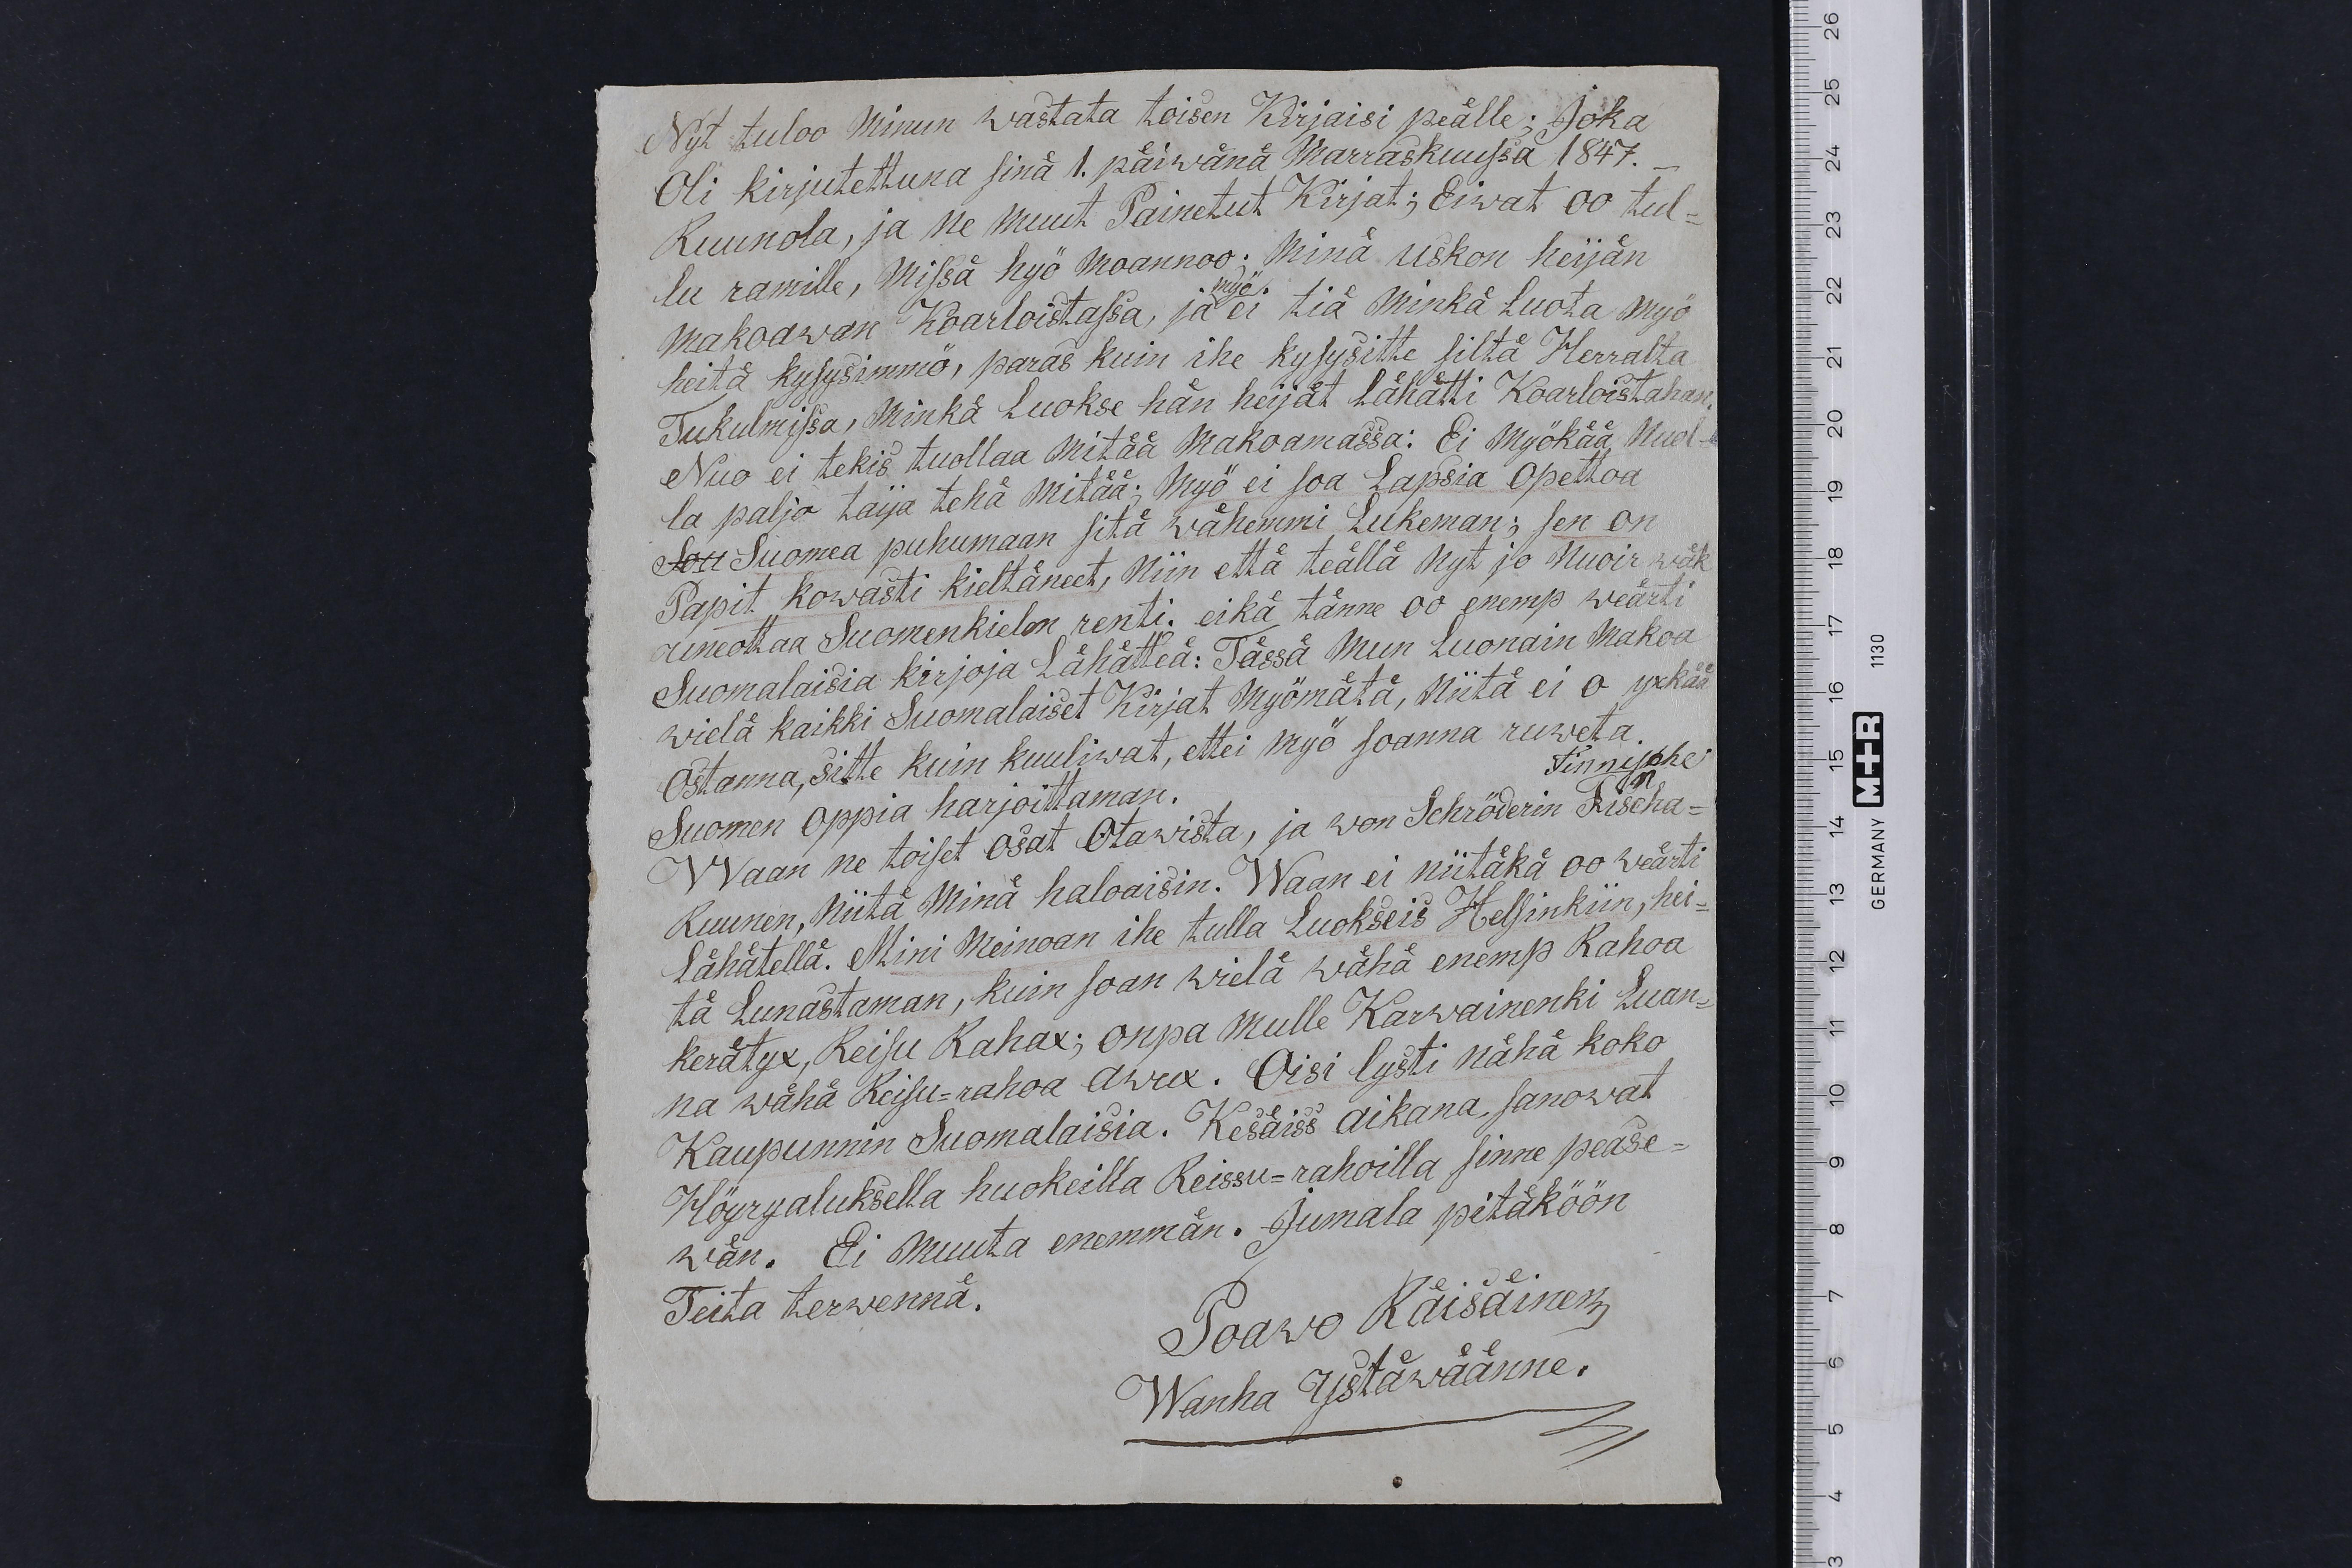 Nyt tuloo Minun wastata toisen Kirjaisi peälle; Joka
Oli kirjutettuna sinä 1. päiwänä Marraskuussa 1847. _
Ruunola, ja Ne Muut Painetut Kirjat; Eiwat oo tul=
lu ramille, Missä hyö Moannoo; Minä uskon heijän
Makoawan Koarloistassa, ja myö. ei tiä Minkä Luota Myö
heitä kysysimmö, paras kuin ihe kysysitte siltä Herralta
Tukulmissa, Minkä Luokse hän heijät Lähätti Koarloistahan.
Nuo ei tekis tuollaa Mitää Makoamassa: Ei Myökää Nuol-
la paljo taija tehä Mitää; Myö ei soa Lapsia Opettoa
Sou Suomea puhumaan sitä wähemmi Lukeman; sen on
Papit kowasti kieltäneet, Niin että teällä Nyt jo Nuoir wäk
auneottaa Suomenkielen renti. eikä tänne oo enemp weärti
Suomalaisia kirjoja Lähätteä: Tässä Mun Luonain Makoa
wielä kaikki Suomalaiset Kirjat Myömätä, Niitä ei o yxkää
Ostanna, sitte kuin kuuliwat, ettei Myö soanna ruweta.
Suomen oppia harjoittaman.
Finnische
Waan ne toiset osat Otawista, ja won Schröderin Fischa=
Ruunen, Niitä Minä haloaisin. Waan ei niitäkä oo weärti
Lähätellä. Mini Meinoan ihe tulla Luokseis Helsinkiin, hei=
tä Lunastaman, kuin soan wielä wähä enemp Rahoa
kerätyx, Reisu Rahax; onpa Mulle Karwainenki Luan=
na wähä Reisu=rahoa awux. Oisi lysti nähä koko
Kaupunnin Suomalaisia. Kesäiss aikana, sanowat
Höyryaluksella huokeilla Reissu=rahoilla sinne peäse=
wän. Ei Muuta enemmän. Jumala pitäköön
Teita terwennä.
Poawo Räisäinen
Wanha Ystäwäänne.
26 25 24 23 22 21 20 19 18 17 16 15 14 13 12 11 10 9 8 7 6 5 4 3
GERMANY M+R 1130